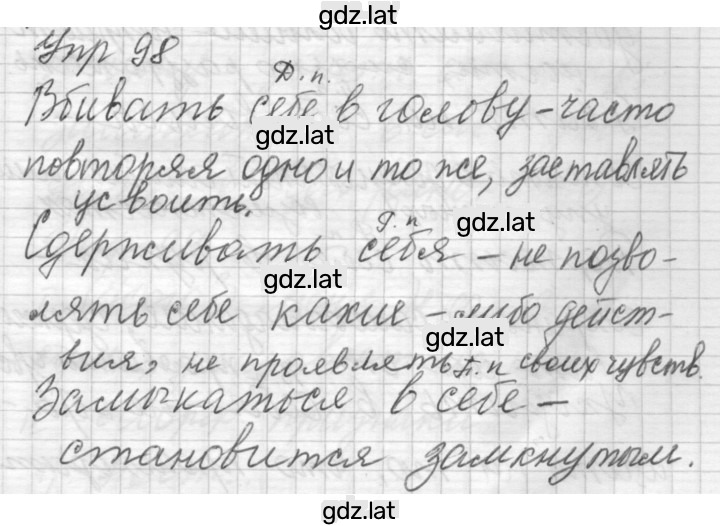 gdz.lat
Упр 98
Д.п.
Вбивать себе в голову - часто
gdz.lat
повторяя одно и то же, заставлять
усвоить.
Р.п
gdz.lat
Сдерживать себя - не позво-
gdz.lat
лять себе какие-либо дейст-
gdz.lat
вия, не проявлять своих чувств.
П.п
Замыкаться в себе -
становится замкнутым.
gdz.lat